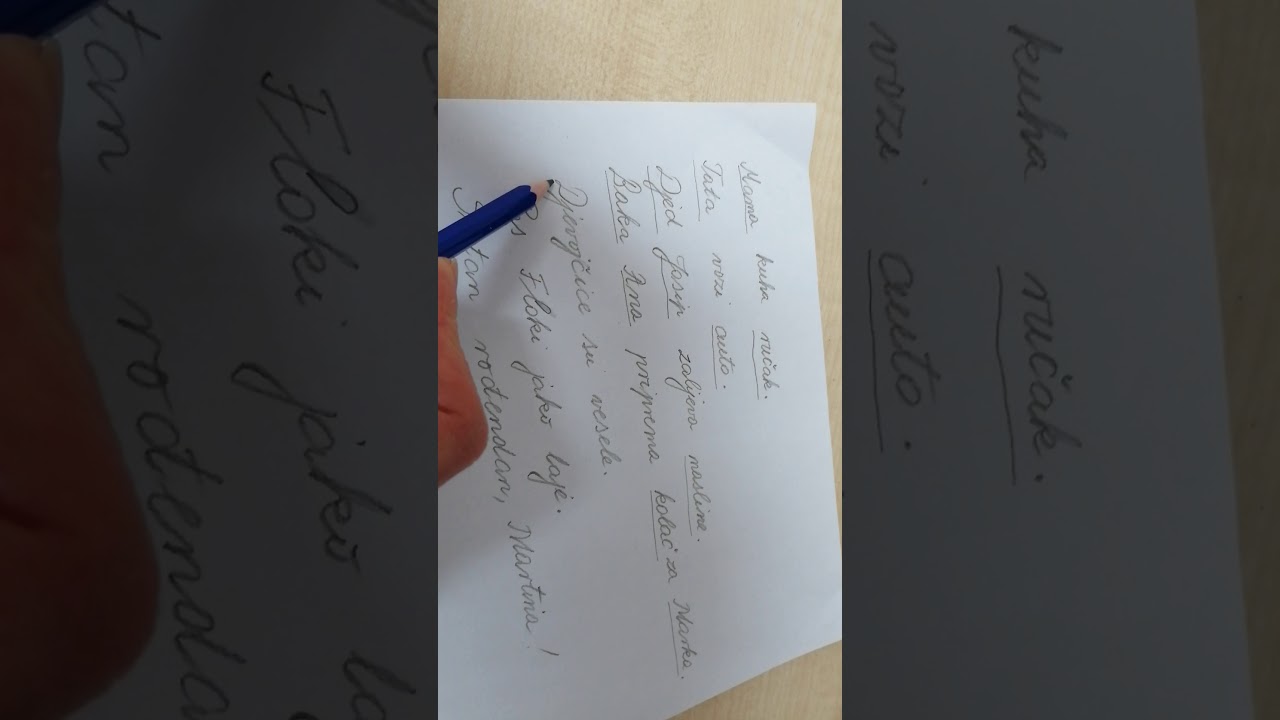 Mama kuha ručak.
Tata vozi auto.
Djed Josip zalijeva masline.
Baka Ana priprema kolač za Marka.
Djevojčice su vesele.
Pas Floki jako laje.
rođendan, Martina!